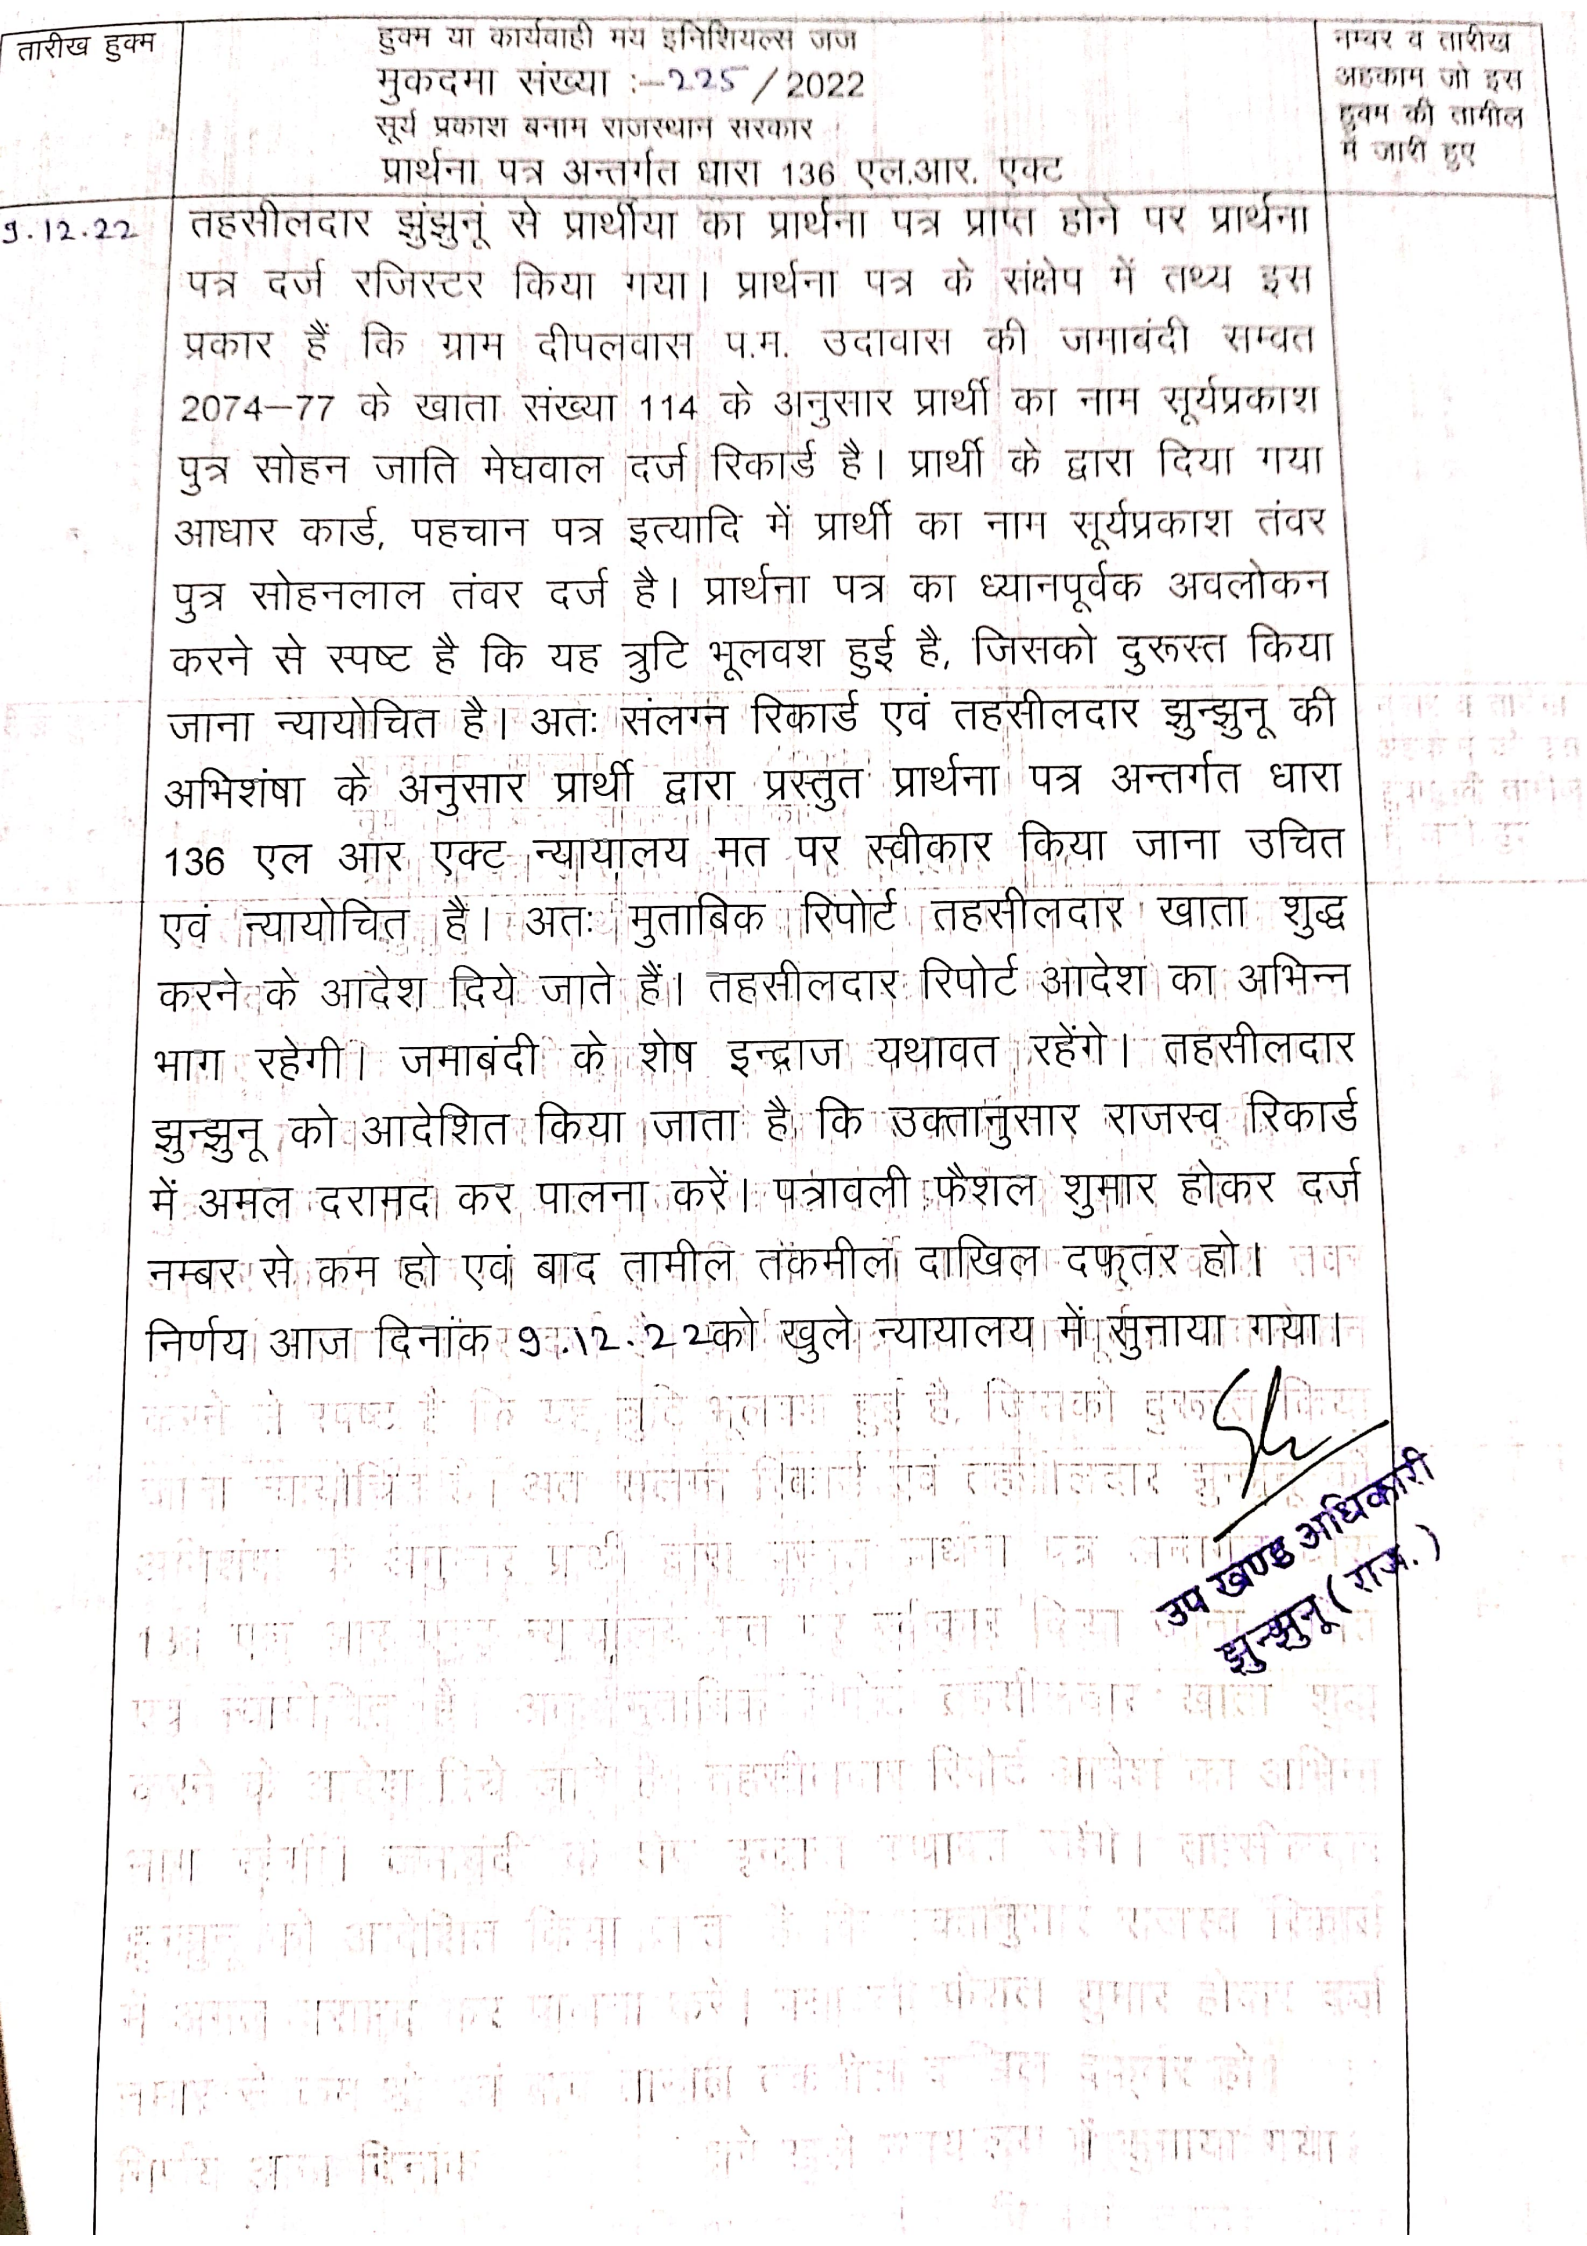 तारीख हुक्म
हुक्म या कार्यवाही मय इनिशियल्स जज
मुकदमा संख्या :–225/2022
सूर्य प्रकाश बनाम राजस्थान सरकार
प्रार्थना पत्र अन्तर्गत धारा 136 एल.आर. एक्ट
नम्बर व तारीख
अहकाम जो इस
हुक्म की तामील
में जारी हुए
9.12.22
तहसीलदार झुंझुनूं से प्रार्थीया का प्रार्थना पत्र प्राप्त होने पर प्रार्थना
पत्र दर्ज रजिस्टर किया गया। प्रार्थना पत्र के संक्षेप में तथ्य इस
प्रकार हैं कि ग्राम दीपलवास प.म. उदावास की जमाबंदी सम्वत
2074–77 के खाता संख्या 114 के अनुसार प्रार्थी का नाम सूर्यप्रकाश
पुत्र सोहन जाति मेघवाल दर्ज रिकार्ड है। प्रार्थी के द्वारा दिया गया
आधार कार्ड, पहचान पत्र इत्यादि में प्रार्थी का नाम सूर्यप्रकाश तंवर
पुत्र सोहनलाल तंवर दर्ज है। प्रार्थना पत्र का ध्यानपूर्वक अवलोकन
करने से स्पष्ट है कि यह त्रुटि भूलवश हुई है, जिसको दुरूस्त किया
जाना न्यायोचित है। अतः संलग्न रिकार्ड एवं तहसीलदार झुन्झुनू की
अभिशंषा के अनुसार प्रार्थी द्वारा प्रस्तुत प्रार्थना पत्र अन्तर्गत धारा
136 एल आर एक्ट न्यायालय मत पर स्वीकार किया जाना उचित
एवं न्यायोचित हैं। अतः मुताबिक रिपोर्ट तहसीलदार खाता शुद्ध
करने के आदेश दिये जाते हैं। तहसीलदार रिपोर्ट आदेश का अभिन्न
भाग रहेगी। जमाबंदी के शेष इन्द्राज यथावत रहेंगे। तहसीलदार
झुन्झुनू को आदेशित किया जाता है कि उक्तानुसार राजस्व रिकार्ड
में अमल दरामद कर पालना करें। पत्रावली फैशल शुमार होकर दर्ज
नम्बर से कम हो एवं बाद तामील तकमील दाखिल दफ्तर हो।
निर्णय आज दिनांक 9.12.22 को खुले न्यायालय में सुनाया गया।
उप खण्ड अधिकारी
झुन्झुनू (राज.)